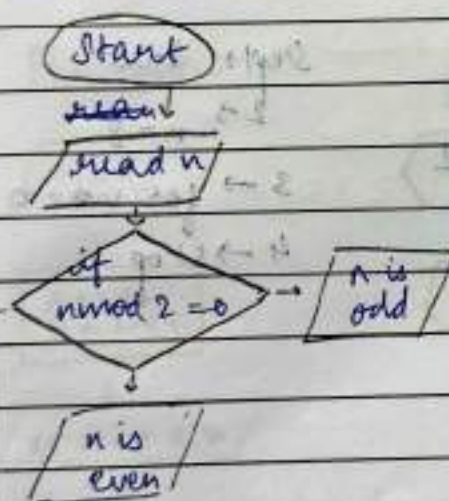 Start
read n
if
n mod 2 = 0
n is
odd
n is
even